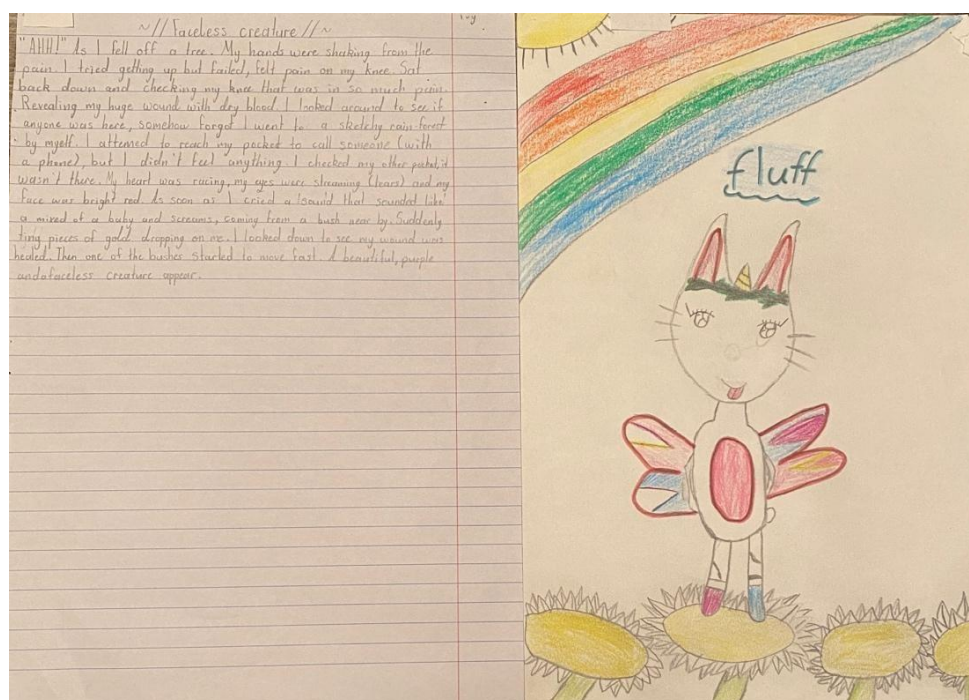 ~// Faceless creature //~
"AHH!" As I fell off a tree. My hands were shaking from the
pain. I tried getting up but failed, felt pain on my knee. Sat
back down and checking my knee that was in so much pain.
Revealing my huge wound with dry blood. I looked around to see if
anyone was here, somehow forgot I went to a sketchy rain-forest
by myself. I attemed to reach my pocket to call someone (with
a phone), but I didn't feel anything. I checked my other pocket, it
wasn't there. My heart was racing, my eyes were streaming (tears) and my
face was bright red. As soon as I cried a sound that sounded like
a mixed of a baby and screams, coming from a bush near by. Suddenly
tiny pieces of gold dropping on me. I looked down to see my wound was
healed. Then one of the bushes started to move fast. A beautiful, purple
and faceless creature appear.
fluff